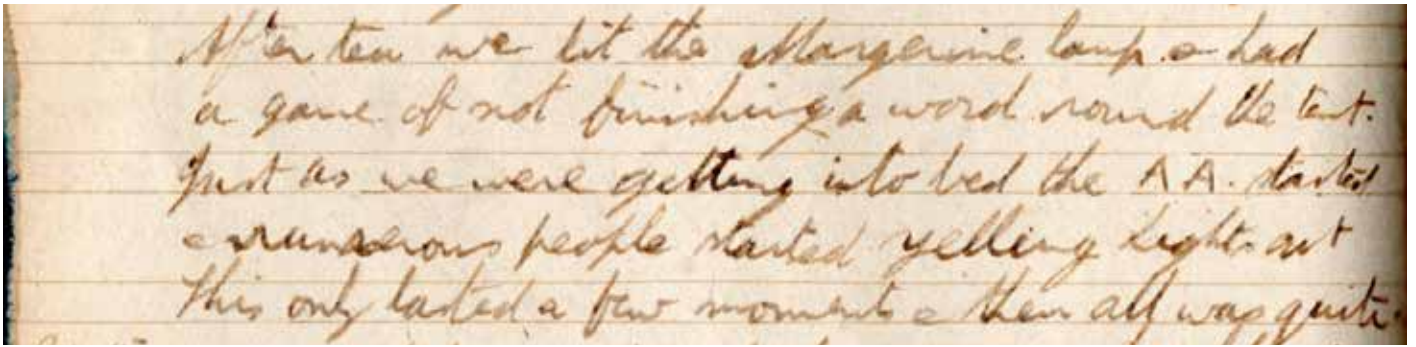 After tea we lit the Margerine lamp & had
a game of not finishing a word round the tent.
Just as we were getting into bed the A A. started
& numerous people started yelling Lights out
This only lasted a few moments & then all was quite.